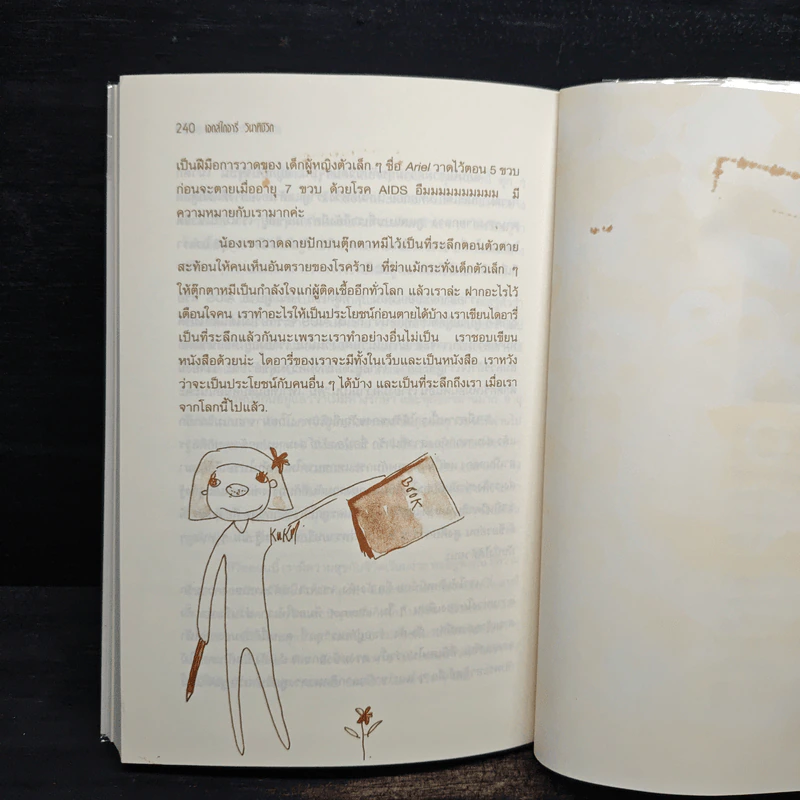 240 เอดส์ไดอารี่ วินาทีชีวิต
เป็นฝีมือการวาดของ เด็กผู้หญิงตัวเล็ก ๆ ชื่อ Ariel วาดไว้ตอน 5 ขวบ
ก่อนจะตายเมื่ออายุ 7 ขวบ ด้วยโรค AIDS อืมมมมมมมมมม มี
ความหมายกับเรามากค่ะ
น้องเขาวาดลายปักบนตุ๊กตาหมีไว้เป็นที่ระลึกตอนตัวตาย
สะท้อนให้คนเห็นอันตรายของโรคร้าย ที่ฆ่าแม้กระทั่งเด็กตัวเล็ก ๆ
ให้ตุ๊กตาหมีเป็นกำลังใจแก่ผู้ติดเชื้ออีกทั่วโลก แล้วเราล่ะ ฝากอะไรไว้
เตือนใจคน เราทำอะไรให้เป็นประโยชน์ก่อนตายได้บ้าง เราเขียนไดอารี่
เป็นที่ระลึกแล้วกันนะเพราะเราทำอย่างอื่นไม่เป็น เราชอบเขียน
หนังสือด้วยน่ะ ไดอารี่ของเราจะมีทั้งในเว็บและเป็นหนังสือ เราหวัง
ว่าจะเป็นประโยชน์กับคนอื่น ๆ ได้บ้าง และเป็นที่ระลึกถึงเรา เมื่อเรา
จากโลกนี้ไปแล้ว.
BOOK